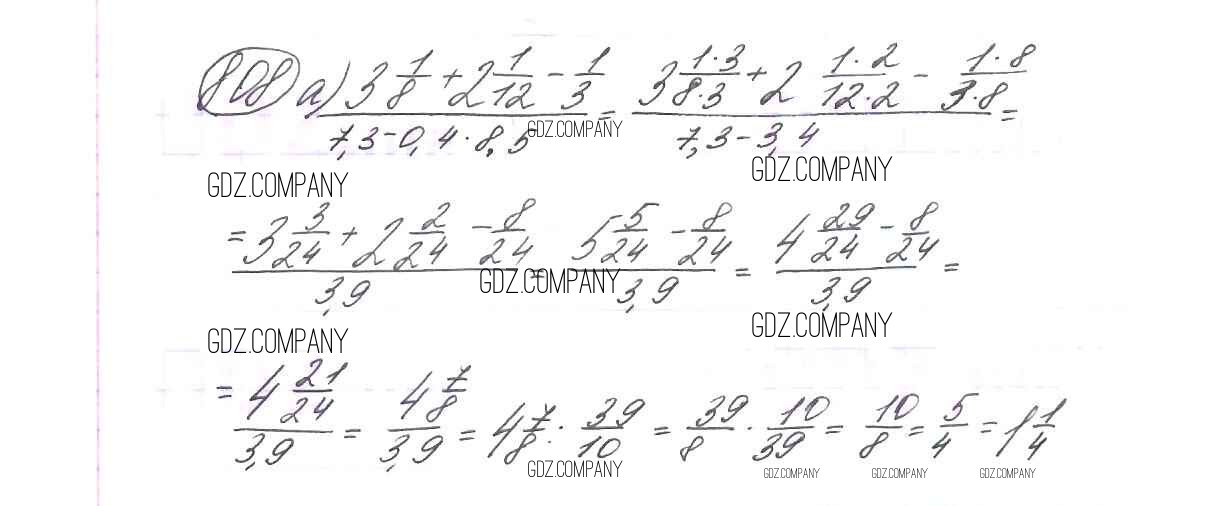 808 а) (3 1/8 + 2 1/12 - 1/3)/(7,3 - 0,4 · 8,5) = (3 1·3/8·3 + 2 1·2/12·2 - 1·8/3·8)/(7,3 - 3,4) =
GDZ.COMPANY
GDZ.COMPANY GDZ.COMPANY
= (3 3/24 + 2 2/24 - 8/24)/3,9 = (5 5/24 - 8/24)/3,9 = (4 29/24 - 8/24)/3,9 =
GDZ.COMPANY
GDZ.COMPANY GDZ.COMPANY
= (4 21/24)/3,9 = (4 7/8)/3,9 = 4 7/8 : 39/10 = 39/8 · 10/39 = 10/8 = 5/4 = 1 1/4
GDZ.COMPANY GDZ.COMPANY GDZ.COMPANY GDZ.COMPANY